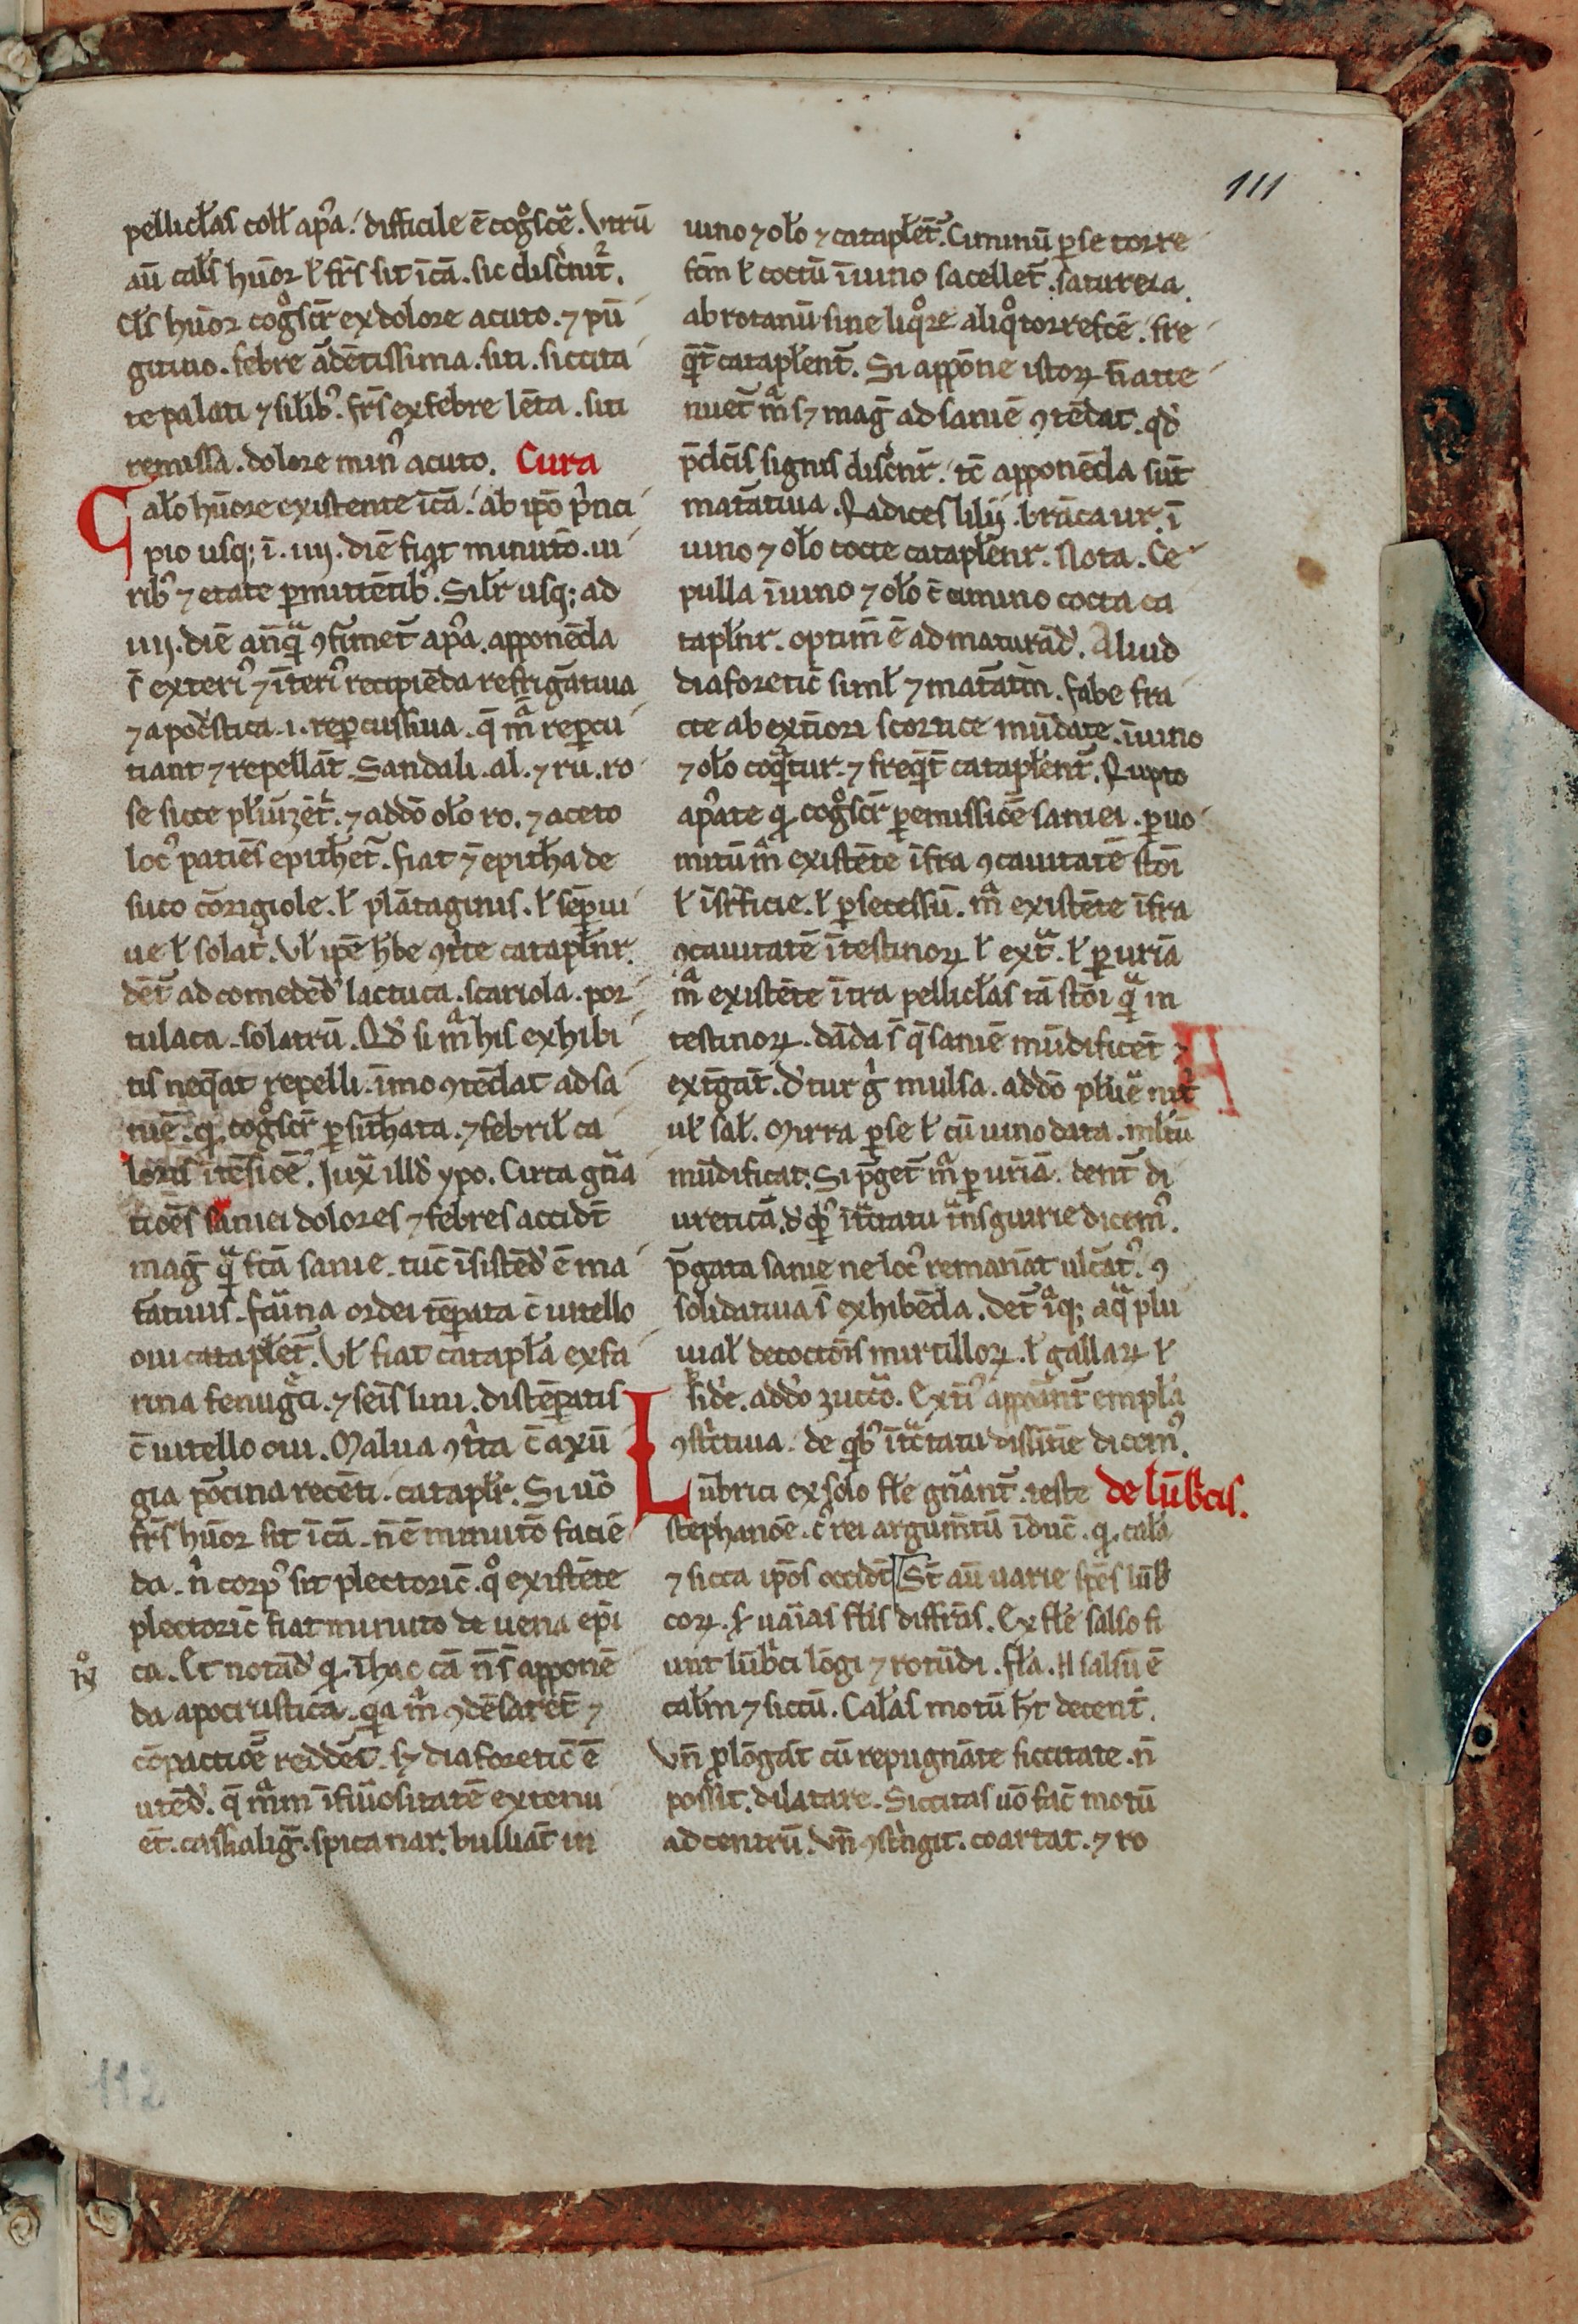 111
pellicłas coll̄ ap̄a. difficile ē cog̊sc̄e. Vtrū
aū cal̄s hūor ł fr̄s sit ī cā. sic disc̄nit̄.
Cl̄s hūor cog̊scit̄ ex dolore acuto. ⁊ pū
gitiuo. febre ādētissima. siti. siccita
te palati ⁊ silib᷒. fr̄s ex febre lēta. siti
remissa. dolore min᷒ acuto. Cura
Calo hūore existente ī cā. ab ip̄o p̄nci
pio usq; ī .iiij. diē fiat minutō. ui
rib᷒ ⁊ etate p̄mittētib᷒. Silr̄ usq; ad
iiij. diē anq̄ ꝯfirmet̄ ap̄a. apponēda
s̄ exteri᷒ ⁊ īteri᷒ recipiēda refrigātiua
⁊ apoc̄stica .i. rep̄cussiua. q̄ m̄a rep̄cu
tiant ⁊ repellāt. Sandali. al. ⁊ rū. ro
se sicce pl̄uizēt̄. ⁊ addō oło ro. ⁊ aceto
loc᷒ patiēs epithēt̄. fiat ⁊ epitha de
suco cōrigiole. ł plātaginis. ł sēp̄ui
ue ł solat̄. Vł ip̄e h̄be ꝯt̄te catapl̄nr̄.
dēt̄ ad comedēd̄ lactuca. scariola. por
tulaca. solatrū. Qd̄ si m̄a his exhibi
tis neq̄at repelli. īmo ꝯtēdat ad sa
niē. q̄ cog̊scit̄ p̄ sithata. ⁊ febril̄ ca
loris ītēsiōē. Iux̄ illd̄ ypo. Circa gn̄a
tiōēs saniei dolores ⁊ febres accidt̄
maḡ q̄ fcā sanie. tūc īsistēd̄ ē ma
t̄atiuis. farina ordei tēp̄ata c̄ uitello
oui catapl̄et̄. Vł fiat catapl̄a ex fa
rina fenuḡci. ⁊ sēis lini. distēp̄atis
c̄ uitello oui. Malua ꝯt̄ta c̄ axū
gia porcina recēti. catapl̄r̄. Si uō
fr̄s hūor sit ī cā. n̄ ē minutō faciē
da. n̄ corp᷒ sit plectoric̄. q̊ existēte
plectoric̄ fiat minutō de uena epī
ca. Et notād̄ q̄ ī hac cā n̄ s̄ apponē
da apocrustica. q̄a m̄a ꝯdēsarēt ⁊
cōpactiōē reddēt. sȝ diaforetic̄ ē
utēd̄. q̄ m̄am ī fūositatē extenu
ēt. cassialiḡ. spica nar. bulliāt in
uino ⁊ oło ⁊ catapl̄ēt̄. Ciminū p̄ se torre
fcm̄ ł coctū ī uino sacellet̄. satureia.
abrotanū sine liq̊re aliq̊ torrefcē. fre
q̄t̄ catapl̄ent̄. Si appōne istoꝝ n̄ atte
nuet̄ m̄a sȝ maḡ ad saniē ꝯtēdat. qd̄
p̄dcīs signis disc̄nit̄. tc̄ apponēda sūt
mat̄atiua. Radices lilij. brāca ur. ī
uino ⁊ oło cocte catapl̄enr̄. Nota. Ce
pulla ī uino ⁊ oło c̄ cimino cocta ca
tapl̄nr̄. optim̄ ē ad maturād̄. Aliud
diaforetic̄ siml̄ ⁊ mat̄atm̄. fabe fra
cte ab exti̇ori scortice mūdate. ī uino
⁊ oło coq̄tur. ⁊ freq̄t̄ catapl̄ent̄. Rupto
ap̄ate q̄ cog̊scit̄ p̄ emissiōē saniei. p̄ uo
mitū m̄a existēte īfra ꝯcauitatē stōī
ł ī suꝑficie. ł p̄ secessū. m̄a existēte īfra
ꝯcauitatē ītestinoꝝ ł ext̄a. ł p̄ urinā
m̄a existēte īt̄a pellicłas tā stōi q̄ in
testinoꝝ. dāda s̄ q̄ saniē mūdificēt ⁊
exīgāt. d̄tur ḡ mulsa. addō pl̄ue nit̄
uł sal̄. Mirra p̄ se ł cū uino data. ml̄tū
mūdificat. Si p̄get̄ m̄a p̄ urinā. dent̄ di
uretica. d̄ qb᷒ ī tctatu st̄nguirie dicem᷒.
p̄gata sanie ne loc᷒ remanāt ulc̄at᷒. ꝯ
solidatiua s̄ exhibēda. Det̄ īq; aq̄ plu
uial̄ decoctōīs mirtilloꝝ. ł gallaꝝ ł
side. addō zuccō. Exti᷒ appōant̄ empl̄a
ꝯst̄ctiua. de qb᷒ ī tctatu dissintīe dicem᷒.
Lūbrici ex solo fle gn̄ant̄. teste de lūbcis.
stephanōe. c᷒ rei argumtū īduc̄. q̄ calā
⁊ sicca ip̄os occidt̄ St̄ aū uarie sp̄es lūb
coꝝ. s̄ uaīas fl̄is diffr̄as. Ex fl̄e salso fi
unt lūb̄ci lōgi ⁊ rotūdi. fl̄a. N salsū ē
cal̄m ⁊ siccū. Cal̄as motū h̄t decent̄.
Vn̄ plōgat cū repugnāte siccitate. n̄
possit. dilatare. Siccitas uō fac̄ motū
ad centrū. Vn̄ ꝯst̄ngit. coartat. ⁊ ro
112